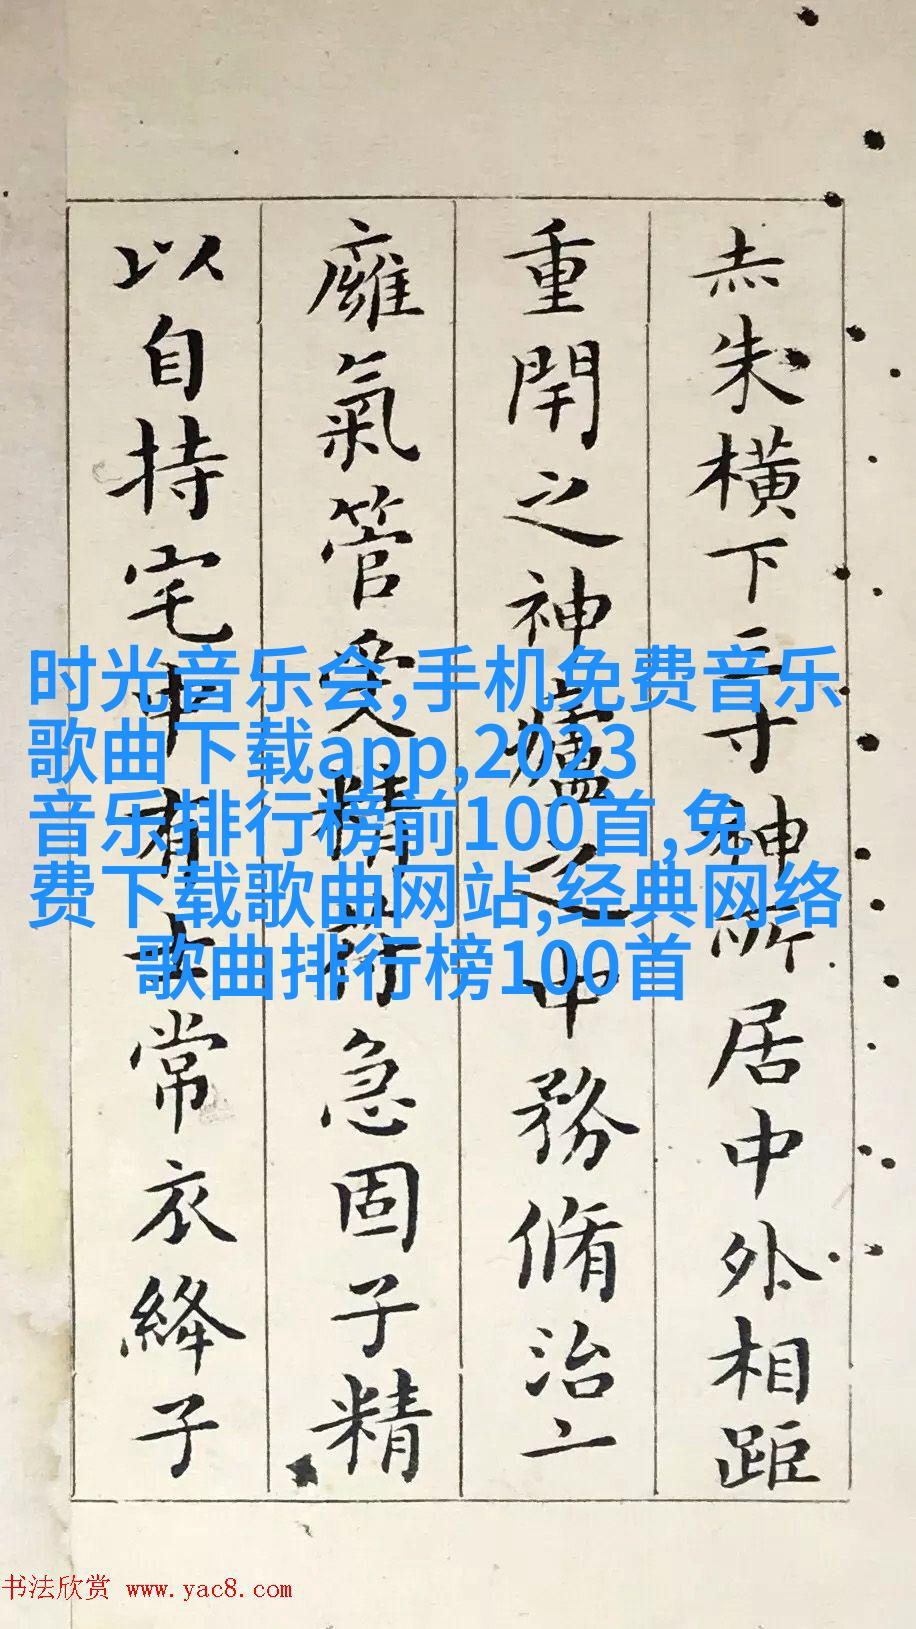 赤朱橫下三寸神所居中外相距
重閇之神廬之中務脩治
膺氣管受精符急固子精
以自持宅中有士常衣絳子
时光音乐会,手机免费音乐
歌曲下载app,2023
音乐排行榜前100首,免
费下载歌曲网站,经典网络
歌曲排行榜100首
书法欣赏 www.yac8.com